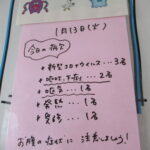 1月13日(火)
今日の病欠
+ 新型コロナウイルス…3名
+ 嘔吐、下痢…2名
+ 嘔気…1名
+ 発熱…1名
+ 発疹…1名
お腹の症状に注意しましょう!